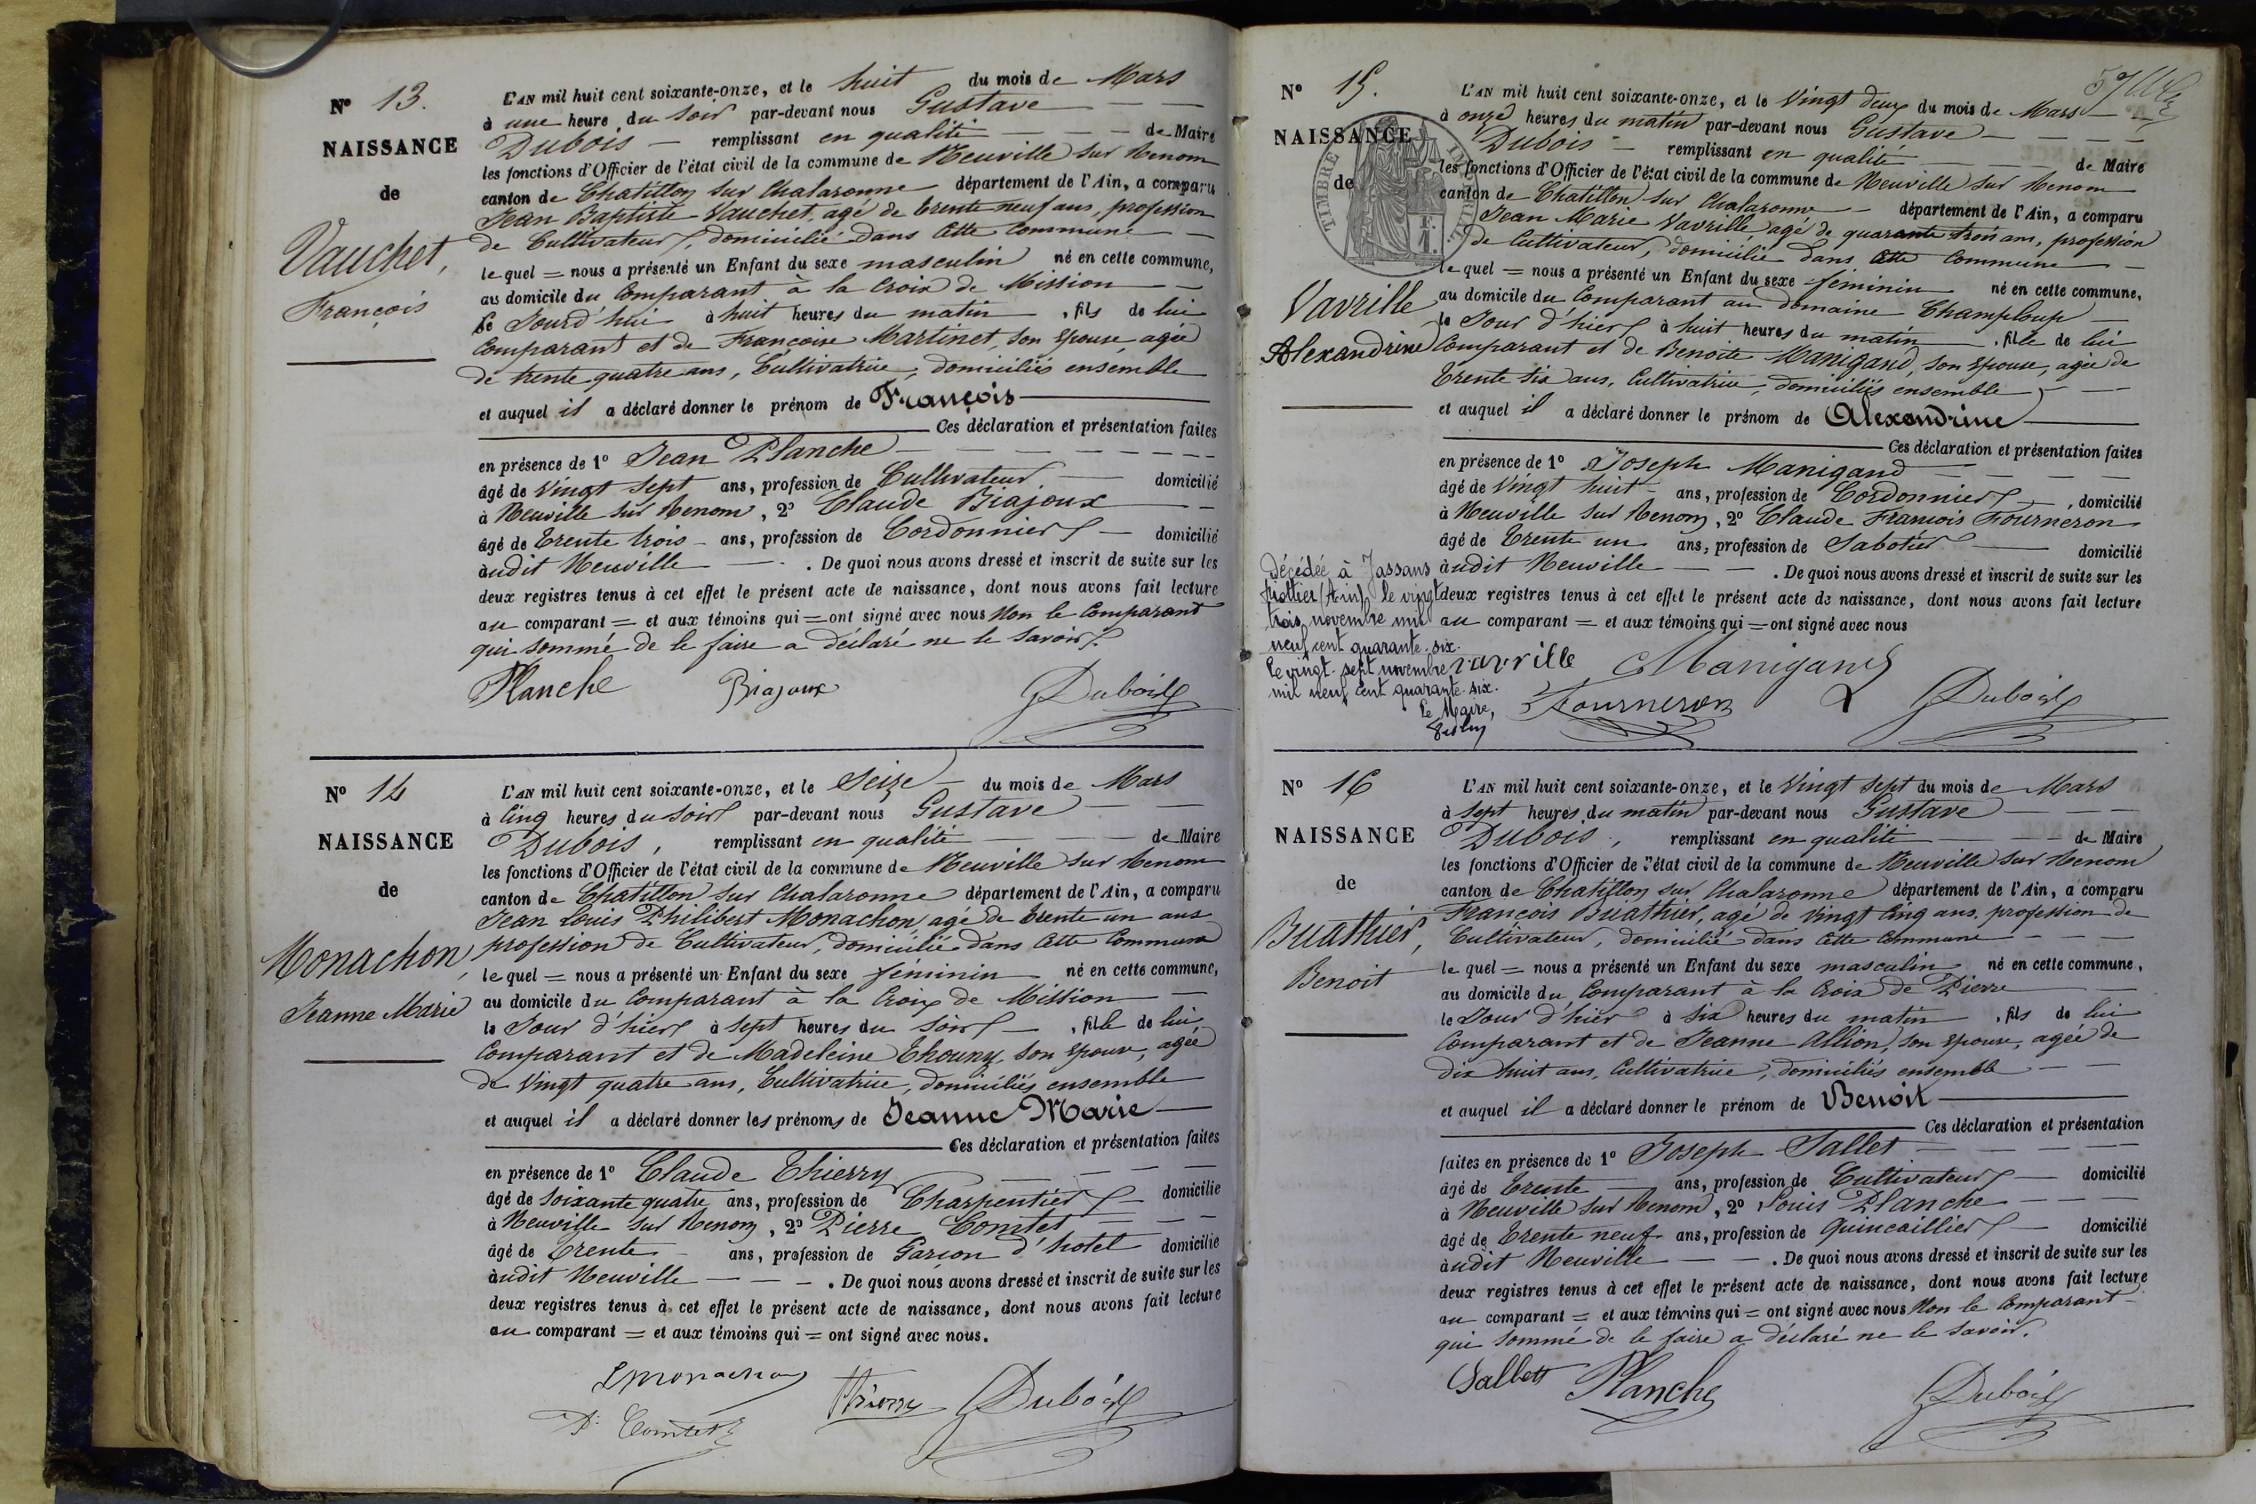 N° 13.
NAISSANCE
de
Vauchet,
François
L'AN mil huit cent soixante-onze, et le huit du mois de Mars
à une heure du soir par-devant nous Gustave
Dubois remplissant en qualité de Maire
les fonctions d'Officier de l'état civil de la commune de Neuville sur Renom
canton de Chatillon sur Chalaronne département de l'Ain, a comparu
Jean Baptiste Vauchet, agé de trente neuf ans, profession
de Cultivateur, domicilié dans cette commune
le quel = nous a présenté un Enfant du sexe masculin né en cette commune,
au domicile du Comparant à la Croix de Mission
le Jourd'hui à huit heures du matin, fils de lui
Comparant et de Françoise Martinet, son épouse, agée
de trente quatre ans, Cultivatrice, domiciliés ensemble
et auquel il a déclaré donner le prénom de François
Ces déclaration et présentation faites
en présence de 1° Jean Planche
âgé de Vingt sept ans, profession de Cultivateur domicilié
à Neuville sur Renom, 2° Claude Biajoux
âgé de trente trois ans, profession de Cordonnier domicilié
audit Neuville. De quoi nous avons dressé et inscrit de suite sur les
deux registres tenus à cet effet le présent acte de naissance, dont nous avons fait lecture
au comparant = et aux témoins qui = ont signé avec nous Non le Comparant
qui sommé de le faire a déclaré ne le savoir.
Planche Biajoux Dubois
N° 14
NAISSANCE
de
Monachon,
Jeanne Marie
L'AN mil huit cent soixante-onze, et le Seize du mois de Mars
à Cinq heures du soir par-devant nous Gustave
Dubois, remplissant en qualité de Maire
les fonctions d'Officier de l'état civil de la commune de Neuville sur Renom
canton de Chatillon sur Chalaronne département de l'Ain, a comparu
Jean Louis Philibert Monachon, agé de trente un ans
profession de Cultivateur, domicilié dans cette commune
le quel = nous a présenté un Enfant du sexe féminin né en cette commune,
au domicile du Comparant à la Croix de Mission
le Jour d'hier à sept heures du soir, fille de lui
Comparant et de Madeleine Thouny, son épouse, agée
de Vingt quatre ans, Cultivatrice, domiciliés ensemble
et auquel il a déclaré donner les prénoms de Jeanne Marie
Ces déclaration et présentation faites
en présence de 1° Claude Thierry
âgé de soixante quatre ans, profession de Charpentier domicilié
à Neuville sur Renom, 2° Pierre Comtet
âgé de trente ans, profession de Garçon d'hotel domicilié
audit Neuville. De quoi nous avons dressé et inscrit de suite sur les
deux registres tenus à cet effet le présent acte de naissance, dont nous avons fait lecture
au comparant = et aux témoins qui = ont signé avec nous.
Monachon Thierry Dubois
P. Comtet
N° 15.
NAISSANCE
de
TIMBRE IMPÉRIAL
Vavrille
Alexandrine
L'AN mil huit cent soixante-onze, et le Vingt deux du mois de Mars
à onze heures du matin par-devant nous Gustave
Dubois remplissant en qualité de Maire
les fonctions d'Officier de l'état civil de la commune de Neuville sur Renom
canton de Chatillon sur Chalaronne département de l'Ain, a comparu
Jean Marie Vavrille agé de quarante trois ans, profession
de Cultivateur, domicilié dans cette commune
le quel = nous a présenté un Enfant du sexe féminin né en cette commune,
au domicile du Comparant au domaine Champloup
le Jour d'hier à huit heures du matin, fille de lui
Comparant et de Benoite Manigand, son épouse, agée de
trente six ans, Cultivatrice, domiciliés ensemble
et auquel il a déclaré donner le prénom de Alexandrine
Ces déclaration et présentation faites
en présence de 1° Joseph Manigand
âgé de Vingt huit ans, profession de Cordonnier, domicilié
à Neuville sur Renom, 2° Claude François Fourneron
âgé de trente un ans, profession de Sabotier domicilié
audit Neuville. De quoi nous avons dressé et inscrit de suite sur les
deux registres tenus à cet effet le présent acte de naissance, dont nous avons fait lecture
au comparant = et aux témoins qui = ont signé avec nous
vavrille Manigand
Fourneron Dubois
Décédée à Jassans
Riottier (Ain), le vingt
trois novembre mil
neuf cent quarante-six.
Le vingt-sept novembre
mil neuf cent quarante-six.
Le Maire,
N° 16
NAISSANCE
de
Buathier,
Benoit
L'AN mil huit cent soixante-onze, et le Vingt sept du mois de Mars
à sept heures du matin par-devant nous Gustave
Dubois, remplissant en qualité de Maire
les fonctions d'Officier de l'état civil de la commune de Neuville sur Renom
canton de Chatillon sur Chalaronne département de l'Ain, a comparu
François Buathier, agé de Vingt Cinq ans, profession de
Cultivateur, domicilié dans cette commune
le quel = nous a présenté un Enfant du sexe masculin né en cette commune,
au domicile du Comparant à la Croix de Pierre
le Jour d'hier à six heures du matin, fils de lui
Comparant et de Jeanne Allion, son épouse, agée de
dix huit ans, Cultivatrice, domiciliés ensemble
et auquel il a déclaré donner le prénom de Benoit
Ces déclaration et présentation
faites en présence de 1° Joseph Sallet
âgé de trente ans, profession de Cultivateur domicilié
à Neuville sur Renom, 2° Louis Planche
âgé de trente neuf ans, profession de quincaillier domicilié
audit Neuville. De quoi nous avons dressé et inscrit de suite sur les
deux registres tenus à cet effet le présent acte de naissance, dont nous avons fait lecture
au comparant = et aux témoins qui = ont signé avec nous Non le Comparant
qui sommé de le faire a déclaré ne le savoir.
Sallet Planche Dubois